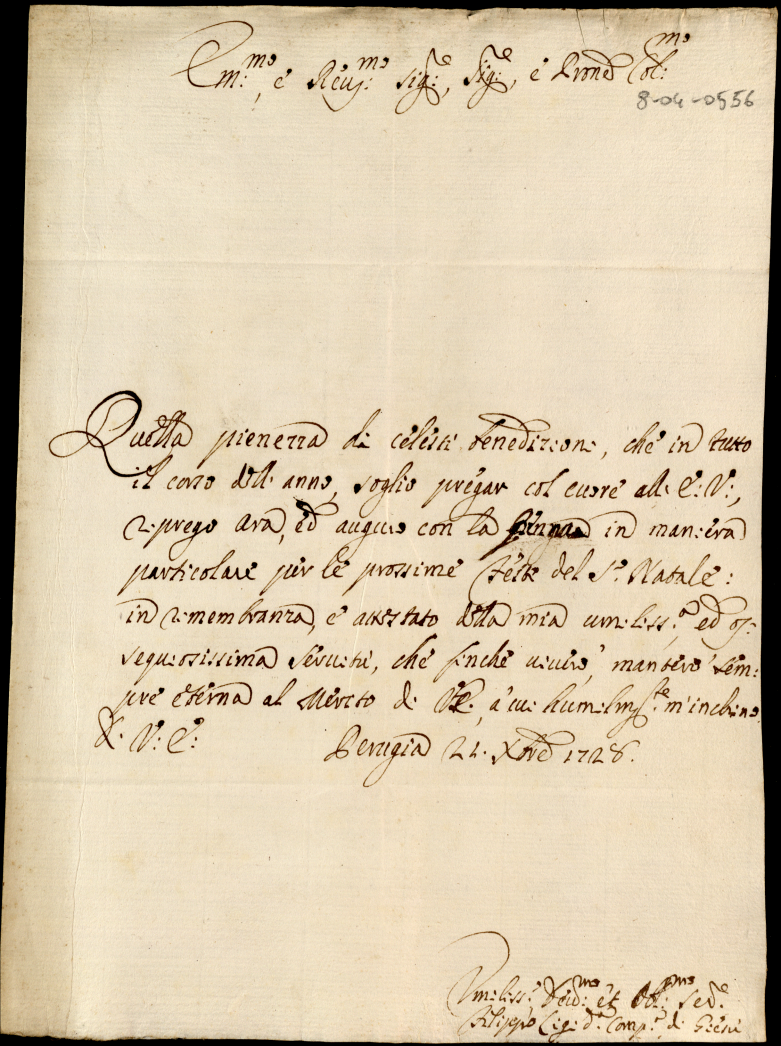 Em:mo, é Reu:mo Sig:re, Sig:re, é Prone Col:mo
8-04-0556
Quella pienezza di celesti benedizioni, ché in tutto
il corso dell'anno, soglio pregar col cuoré all'E: V:,
prego ora, ed auguro con la penna in maniera
particolare per lé prossime feste del S.o Natale:
in rimembranza, é attestato della mia umiliss:a ed os:
sequiosissima seruitù, ché finché uiuerò, manterò sem:
pre eterna al Merito di V.E., à cui humilm.te m'inchino.
Di V: E: Perugia 21. Xbre 1728.
Umiliss: Deu:mo et Obl:mo Ser.e
Filippo d.a Comp.a di Giesù